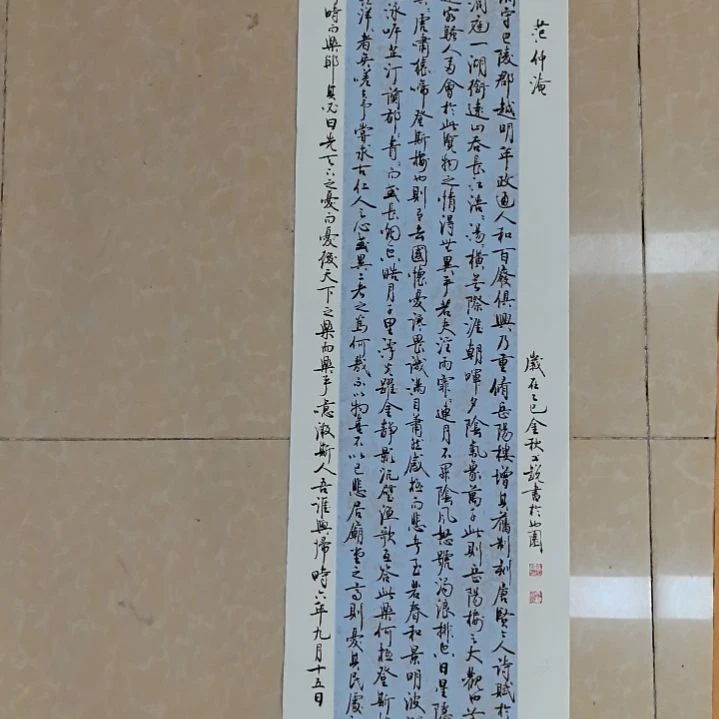 范仲淹
守巴陵郡越明年政通人和百廢俱興乃重修岳陽樓增其舊制刻唐賢今人詩賦於
洞庭一湖銜遠山吞長江浩浩湯湯橫無際涯朝暉夕陰氣象萬千此則岳陽樓之大觀也
遷客騷人多會於此覽物之情得無異乎若夫淫雨霏霏連月不開陰風怒號濁浪排空日星隱
虎嘯猿啼登斯樓也則有去國懷憂讒畏譏滿目蕭然感極而悲者矣至若春和景明波
泳岸芷汀蘭郁郁青青而或長煙一空皓月千里浮光躍金靜影沉璧漁歌互答此樂何極登斯
洋者矣嗟夫予嘗求古仁人之心或異二者之為何哉不以物喜不以己悲居廟堂之高則憂其民處
時而樂耶其必曰先天下之憂而憂後天下之樂而樂乎噫微斯人吾誰與歸時六年九月十五日
歲在乙巳金秋